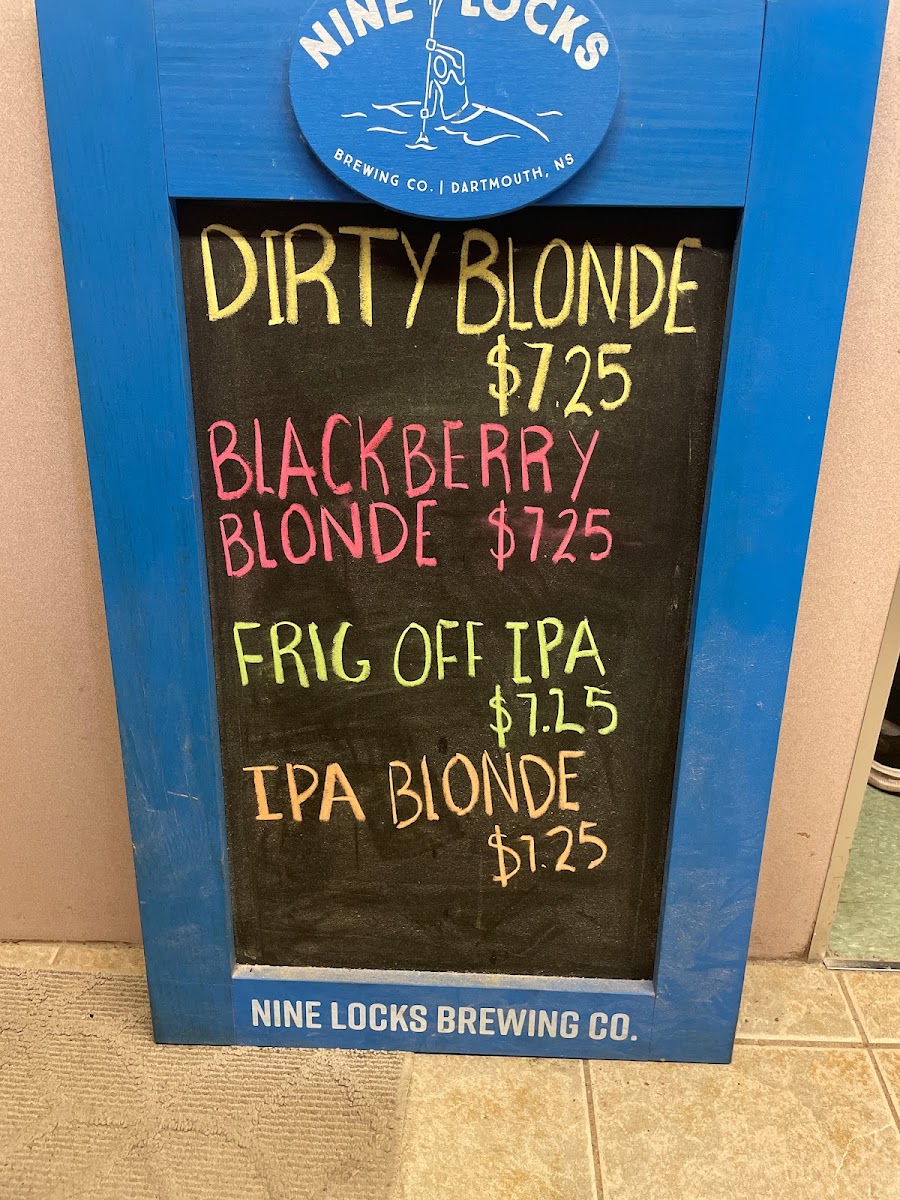 NINE LOCKS
BREWING CO. | DARTMOUTH, NS
DIRTY BLONDE
$7.25
BLACKBERRY
BLONDE $7.25
FRIG OFF IPA
$7.25
IPA BLONDE
$7.25
NINE LOCKS BREWING CO.